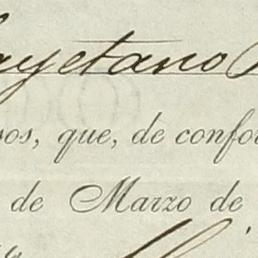 ayetano
sos, que, de confor
de Marzo de